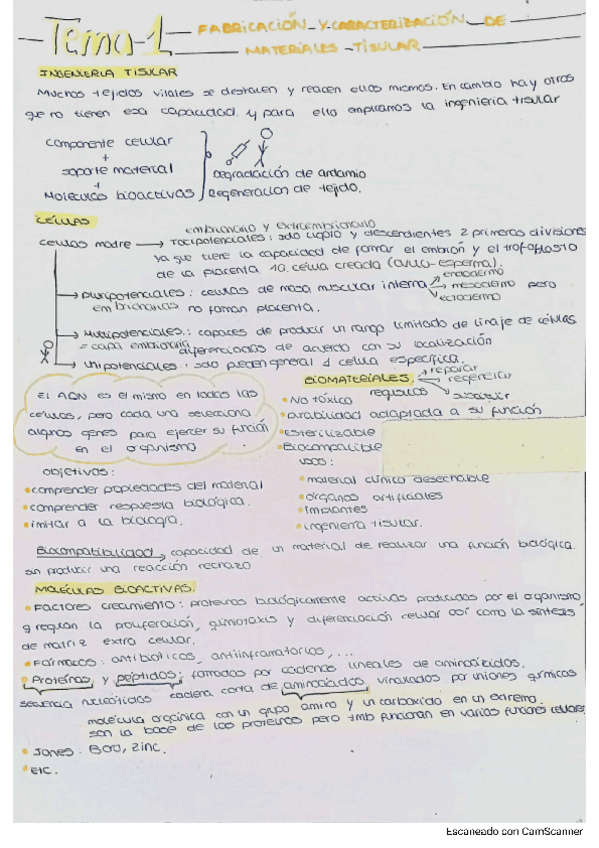 Tema-1 FABRICACIÓN Y CARACTERIZACIÓN DE
MATERIALES TISULAR
INGENIERIA TISULAR
Muchos tejidos vitales se destruyen y reacen ellos mismos. En cambio hay otros
que no tienen esa capacidad y para ello empleamos la ingenieria tisular
componente celular
+
soporte material
+
Moléculas bioactivas
Degradación de andamio
Regeneración de tejido.
CÉLULAS
embrionario y extraembrionario
células madre → Totipotenciales: solo cigoto y descendientes 2 primeras divisiones
ya que tiene la capacidad de formar el embrión y el trofoblasto
de la placenta 1a célula creada (óvulo-esperma).
→ Pluripotenciales: celulas de masa muscular interna → endodermo
mesodermo pero
ectodermo
embrionarias no forman placenta.
→ Multipotenciales: capaces de producir un rango limitado de linaje de células
= capa embrionaria diferenciadas de acuerdo con su localización
→ Unipotenciales: solo pueden general 1 celula especifica.
El ADN es el mismo en todas las
células, pero cada una selecciona
algunos genes para ejercer su función
en el organismo
BIOMATERIALES → reparar
regenerar
sustituir
requisitos
• No tóxico
• Durabilidad adaptada a su función
• Esterilizable
• Biocompatible
objetivos:
• comprender propiedades del material
• comprender respuesta biológica.
• imitar a la biología.
usos:
• material clinico desechable
• órganos artificiales
• Implantes
• ingenieria tisular.
Biocompatibilidad → capacidad de un material de realizar una función biológica
sin producir una reacción rechazo
MOLÉCULAS BIOACTIVAS.
• Factores crecimiento: proteinas biológicamente activas producidas por el organismo
y regulan la proliferación, quimiotaxis y diferenciación celular así como la síntesis
de matriz extra celular.
• Fármacos: antibióticos, antiinflamatorios, ...
• Proteínas y péptidos: formados por cadenas lineales de aminoácidos.
secuencia nucleótidos cadena corta de aminoácidos vinculados por uniones químicas
molécula orgánica con un grupo amino y un carboxido en un extremo.
son la base de las proteinas pero tmb funcionan en varias funciones celulares
• Iones: Boro, zinc.
• ETC.
Escaneado con CamScanner